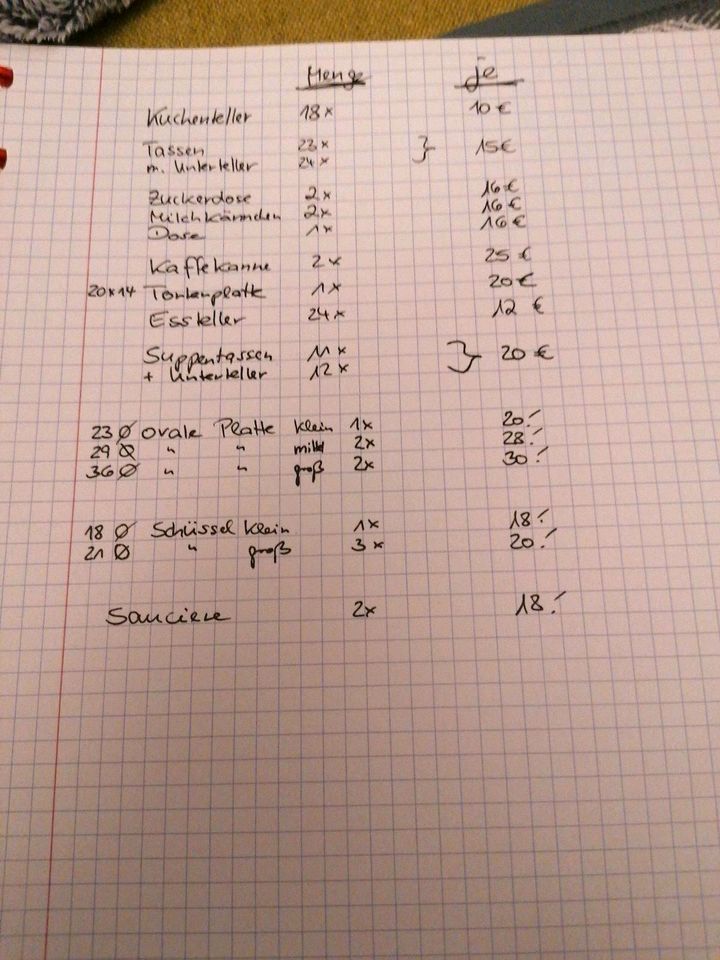 Menge je
Kuchenteller 18x 10 €
Tassen 23x
m. Unterteller 24x } 15 €
Zuckerdose 2x 16 €
Milchkännchen 2x 16 €
Dose 1x 16 €
Kaffekanne 2x 25 €
20x14 Tortenplatte 1x 20 €
Essteller 24x 12 €
Suppentassen 11x
+ Unterteller 12x } 20 €
23 Ø ovale Platte klein 1x 20.-
29 Ø " " mittel 2x 28.-
36 Ø " " groß 2x 30.-
18 Ø Schüssel klein 1x 18.-
21 Ø " groß 3x 20.-
Sauciere 2x 18.-